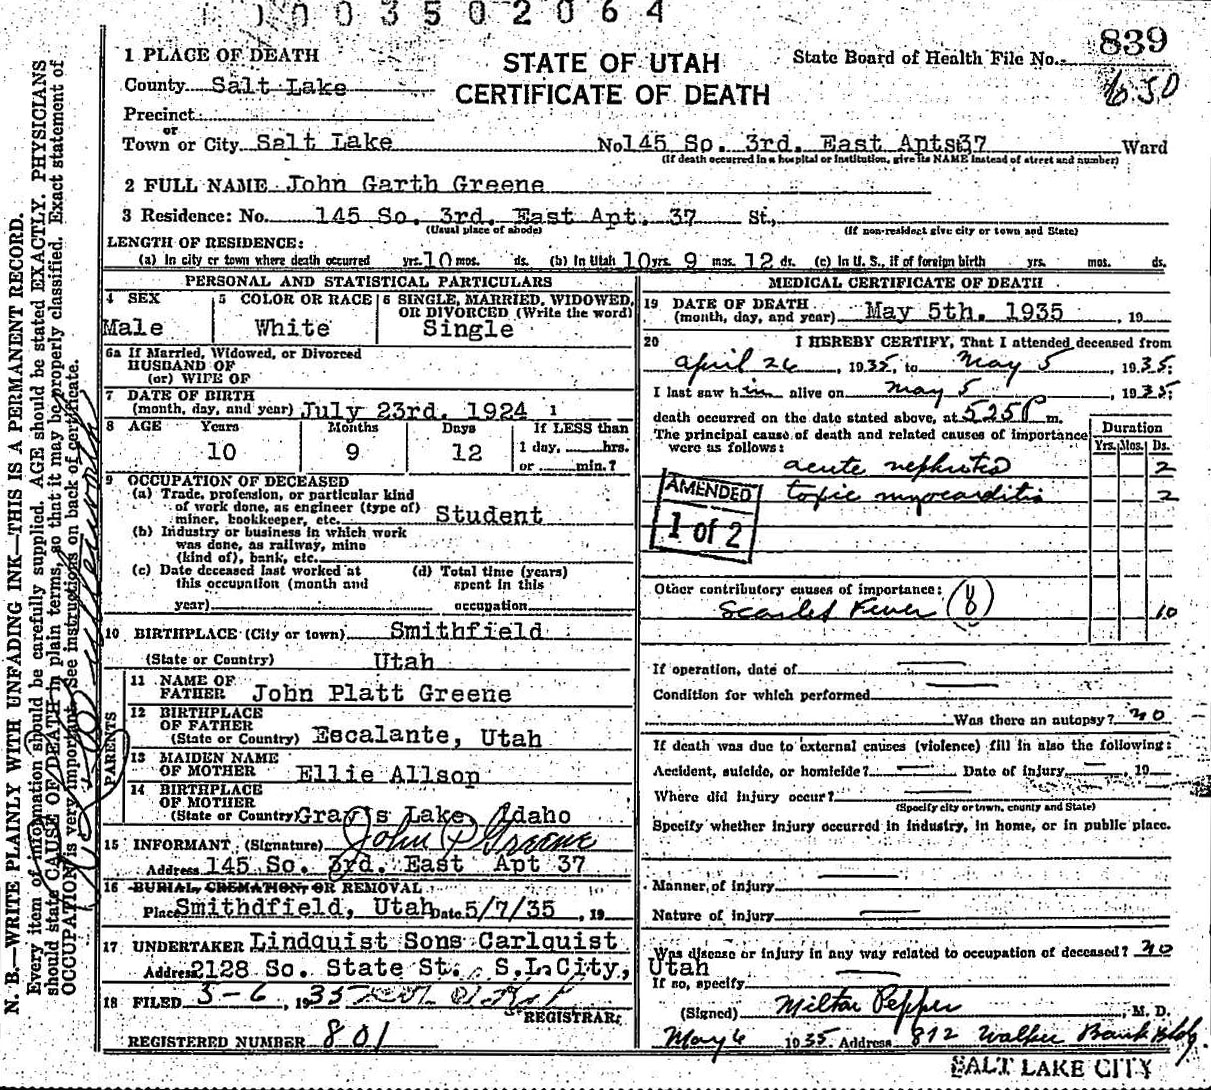 0003502064
839
1 PLACE OF DEATH
STATE OF UTAH
State Board of Health File No.
County Salt Lake
CERTIFICATE OF DEATH
Precinct
or
Town or City Salt Lake No 145 So. 3rd. East Apts 37 Ward
(If death occurred in a hospital or institution, give its NAME instead of street and number)
2 FULL NAME John Garth Greene
3 Residence: No. 145 So. 3rd. East Apt. 37 St.,
(Usual place of abode) (If non-resident give city or town and State)
LENGTH OF RESIDENCE:
(a) In city or town where death occurred yrs. 10 mos. ds. (b) In Utah 10 yrs. 9 mos. 12 ds. (c) In U. S., if of foreign birth yrs. mos. ds.
PERSONAL AND STATISTICAL PARTICULARS
4 SEX 5 COLOR OR RACE 6 SINGLE, MARRIED, WIDOWED,
OR DIVORCED (Write the word)
Male White Single
6a If Married, Widowed, or Divorced
HUSBAND OF
(or) WIFE OF
7 DATE OF BIRTH
(month, day, and year) July 23rd. 1924
8 AGE Years Months Days If LESS than
1 day, hrs.
10 9 12
or min.?
9 OCCUPATION OF DECEASED
(a) Trade, profession, or particular kind
of work done, as engineer (type of)
miner, bookkeeper, etc. Student
(b) Industry or business in which work
was done, as railway, mine
(kind of), bank, etc.
(c) Date deceased last worked at (d) Total time (years)
this occupation (month and spent in this
year) occupation
10 BIRTHPLACE (City or town) Smithfield
(State or Country) Utah
PARENTS
11 NAME OF
FATHER John Platt Greene
12 BIRTHPLACE
OF FATHER
(State or Country) Escalante, Utah
13 MAIDEN NAME
OF MOTHER Ellie Allsop
14 BIRTHPLACE
OF MOTHER
(State or Country) Grays Lake, Idaho
15 INFORMANT (Signature) John P Greene
Address 145 So. 3rd. East Apt 37
16 BURIAL, CREMATION, OR REMOVAL
Place Smithdfield, Utah Date 5/7/35, 19
17 UNDERTAKER Lindquist Sons Carlquist
Address 2128 So. State St. S.L.City, Utah
18 FILED 5-6, 1935
REGISTRAR
REGISTERED NUMBER 801
MEDICAL CERTIFICATE OF DEATH
19 DATE OF DEATH
(month, day, and year) May 5th. 1935, 19
20 I HEREBY CERTIFY, That I attended deceased from
April 26, 1935, to May 5, 1935;
I last saw him alive on May 5, 1935;
death occurred on the date stated above, at 525 P m.
The principal cause of death and related causes of importance
were as follows:
Duration
Yrs. Mos. Ds.
acute nephritis 2
toxic myocarditis 2
AMENDED
1 of 2
Other contributory causes of importance:
Scarlet Fever (8) 10
If operation, date of
Condition for which performed
Was there an autopsy? no
If death was due to external causes (violence) fill in also the following:
Accident, suicide, or homicide? Date of injury 19
Where did injury occur?
(Specify city or town, county and State)
Specify whether injury occurred in industry, in home, or in public place.
Manner of injury
Nature of injury
Was disease or injury in any way related to occupation of deceased? no
If so, specify
(Signed) Milton Pepper, M. D.
May 6 1935 Address 812 Walker Bank Bldg.
SALT LAKE CITY
N. B.—WRITE PLAINLY WITH UNFADING INK—THIS IS A PERMANENT RECORD.
Every item of information should be carefully supplied. AGE should be stated EXACTLY. PHYSICIANS
should state CAUSE OF DEATH in plain terms, so that it may be properly classified. Exact statement of
OCCUPATION is very important. See instructions on back of certificate.